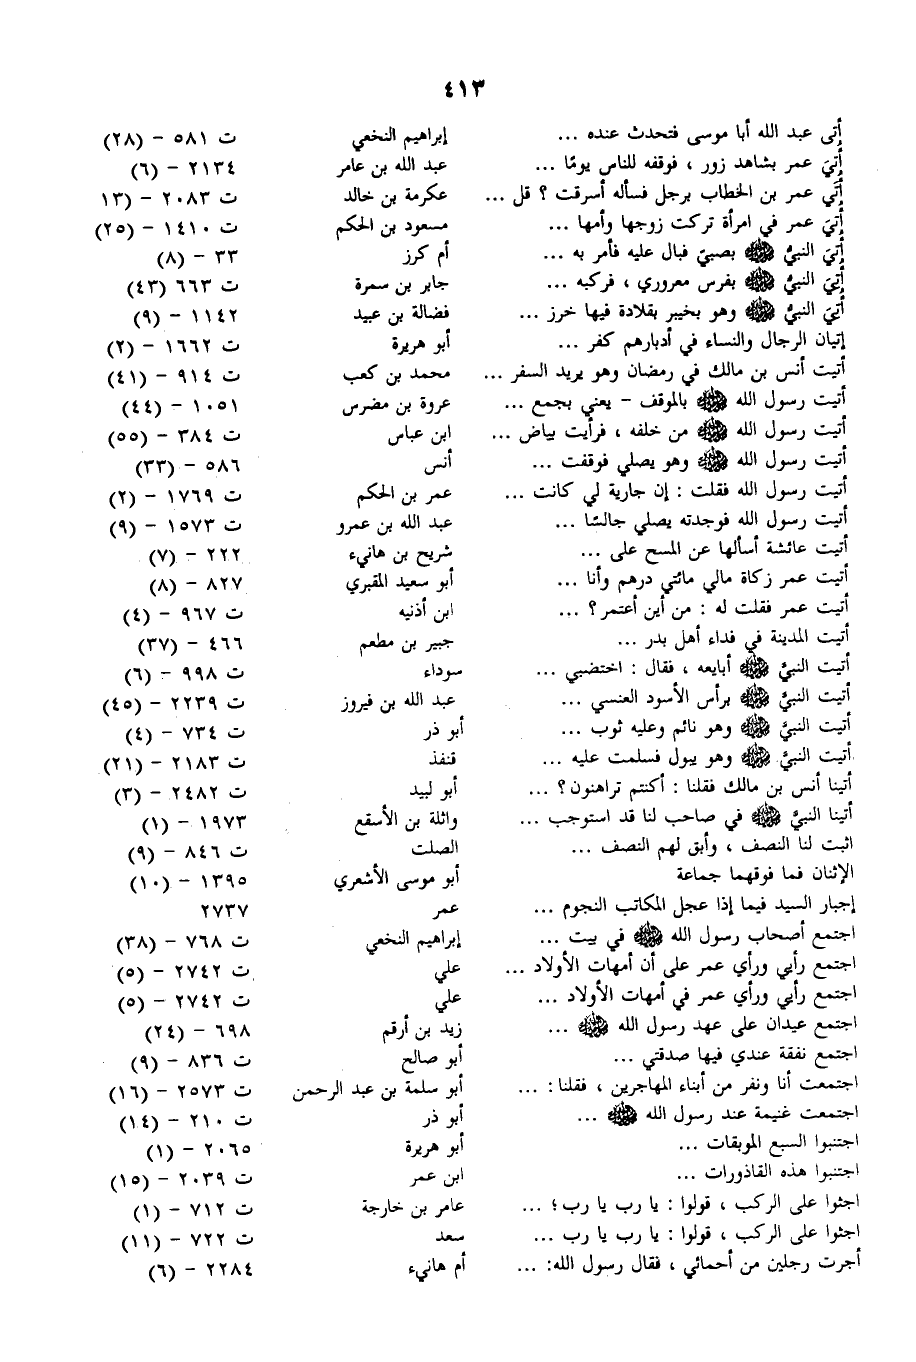 ٤١٣
أتى عبد الله أبا موسى فتحدث عنده ... إبراهيم النخعي ت ٥٨١ - (٢٨)
أُتِيَ عمر بشاهد زور ، فوقفه للناس يومًا ... عبد الله بن عامر ٢١٣٤ - (٦)
أُتَي عمر بن الخطاب برجل فسأله أسرقت ؟ قل ... عكرمة بن خالد ت ٢٠٨٣ - (١٣
أُتِيَ عمر في امرأة تركت زوجها وأمها ... مسعود بن الحكم ت ١٤١٠ - (٢٥)
أُتِيَ النبيُّ ﷺ بصبيّ فبال عليه فأمر به ... أم كرز ٣٣ - (٨)
أُتِيَ النبيُّ ﷺ بفرس معروري ، فركبه ... جابر بن سمرة ت ٦٦٣ (٤٣)
أُتِيَ النبيُّ ﷺ وهو بخيبر بقلادة فيها خرز ... فضالة بن عبيد ١١٤٢ - (٩)
إتيان الرجال والنساء في أدبارهم كفر ... أبو هريرة ت ١٦٦٢ - (٢)
أتيت أنس بن مالك في رمضان وهو يريد السفر ... محمد بن كعب ت ٩١٤ - (٤١)
أتيت رسول الله ﷺ بالموقف - يعني بجمع ... عروة بن مضرس ١٠٥١ - (٤٤)
أتيت رسول الله ﷺ من خلفه ، فرأيت بياض ... ابن عباس ت ٣٨٤ - (٥٥)
أتيت رسول الله ﷺ وهو يصلي فوقفت ... أنس ٥٨٦ - (٣٣)
أتيت رسول الله فقلت : إن جارية لي كانت ... عمر بن الحكم ت ١٧٦٩ - (٢)
أتيت رسول الله فوجدته يصلي جالسًا ... عبد الله بن عمرو ت ١٥٧٣ - (٩)
أتيت عائشة أسألها عن المسح على ... شريح بن هانيء ٢٢٢ - (٧)
أتيت عمر زكاة مالي مائتي درهم وأنا ... أبو سعيد المقبري ٨٢٧ - (٨)
أتيت عمر فقلت له : من أين أعتمر؟ ... ابن أذنيه ت ٩٦٧ - (٤)
أتيت المدينة في فداء أهل بدر ... جبير بن مطعم ٤٦٦ - (٣٧)
أتيت النبيَّ ﷺ أبايعه ، فقال : اختضبي ... سوداء ت ٩٩٨ - (٦)
أتيت النبيَّ ﷺ برأس الأسود العنسي ... عبد الله بن فيروز ت ٢٢٣٩ - (٤٥)
أتيت النبيَّ ﷺ وهو نائم وعليه ثوب ... أبو ذر ت ٧٣٤ - (٤)
أتيت النبيَّ ﷺ وهو يبول فسلمت عليه ... قنفذ ت ٢١٨٣ - (٢١)
أتينا أنس بن مالك فقلنا : أكنتم تراهنون؟ ... أبو لبيد ت ٢٤٨٢ - (٣)
أتينا النبيَّ ﷺ في صاحب لنا قد استوجب ... واثلة بن الأسقع ١٩٧٣ - (١)
اثبت لنا النصف ، وأبق لهم النصف ... الصلت ت ٨٤٦ - (٩)
الإثنان فما فوقهما جماعة أبو موسى الأشعري ١٣٩٥ - (١٠)
إجبار السيد فيما إذا عجل المكاتب النجوم ... عمر ٢٧٣٧
اجتمع أصحاب رسول الله ﷺ في بيت ... إبراهيم النخعي ت ٧٦٨ - (٣٨)
اجتمع رأيي ورأي عمر على أن أمهات الأولاد ... علي ت ٢٧٤٢ - (٥)
اجتمع رأيي ورأي عمر في أمهات الأولاد ... علي ت ٢٧٤٢ - (٥)
اجتمع عيدان على عهد رسول الله ﷺ ... زيد بن أرقم ٦٩٨ - (٢٤)
اجتمع نفقة عندي فيها صدقتي ... أبو صالح ت ٨٣٦ - (٩)
اجتمعت أنا ونفر من أبناء المهاجرين ، فقلنا: ... أبو سلمة بن عبد الرحمن ت ٢٥٧٣ - (١٦)
اجتمعت غنيمة عند رسول الله ﷺ ... أبو ذر ت ٢١٠ - (١٤)
اجتنبوا السبع الموبقات ... أبو هريرة ٢٠٦٥ - (١)
اجتنبوا هذه القاذورات ... ابن عمر ت ٢٠٣٩ - (١٥)
اجثوا على الركب ، قولوا : يا رب يا رب؛ ... عامر بن خارجة ت ٧١٢ - (١)
اجثوا على الركب ، قولوا : يا رب يا رب ... سعد ت ٧٢٢ - (١١)
أجرت رجلين من أحمائي ، فقال رسول الله: ... أم هانيء ٢٢٨٤ - (٦)